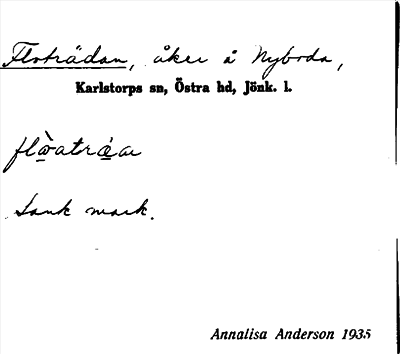 Floträdan, åker å Nyboda,
Karlstorps sn, Östra hd, Jönk. l.
flò̠atrá̠a
Sank mark.
Annalisa Anderson 1935